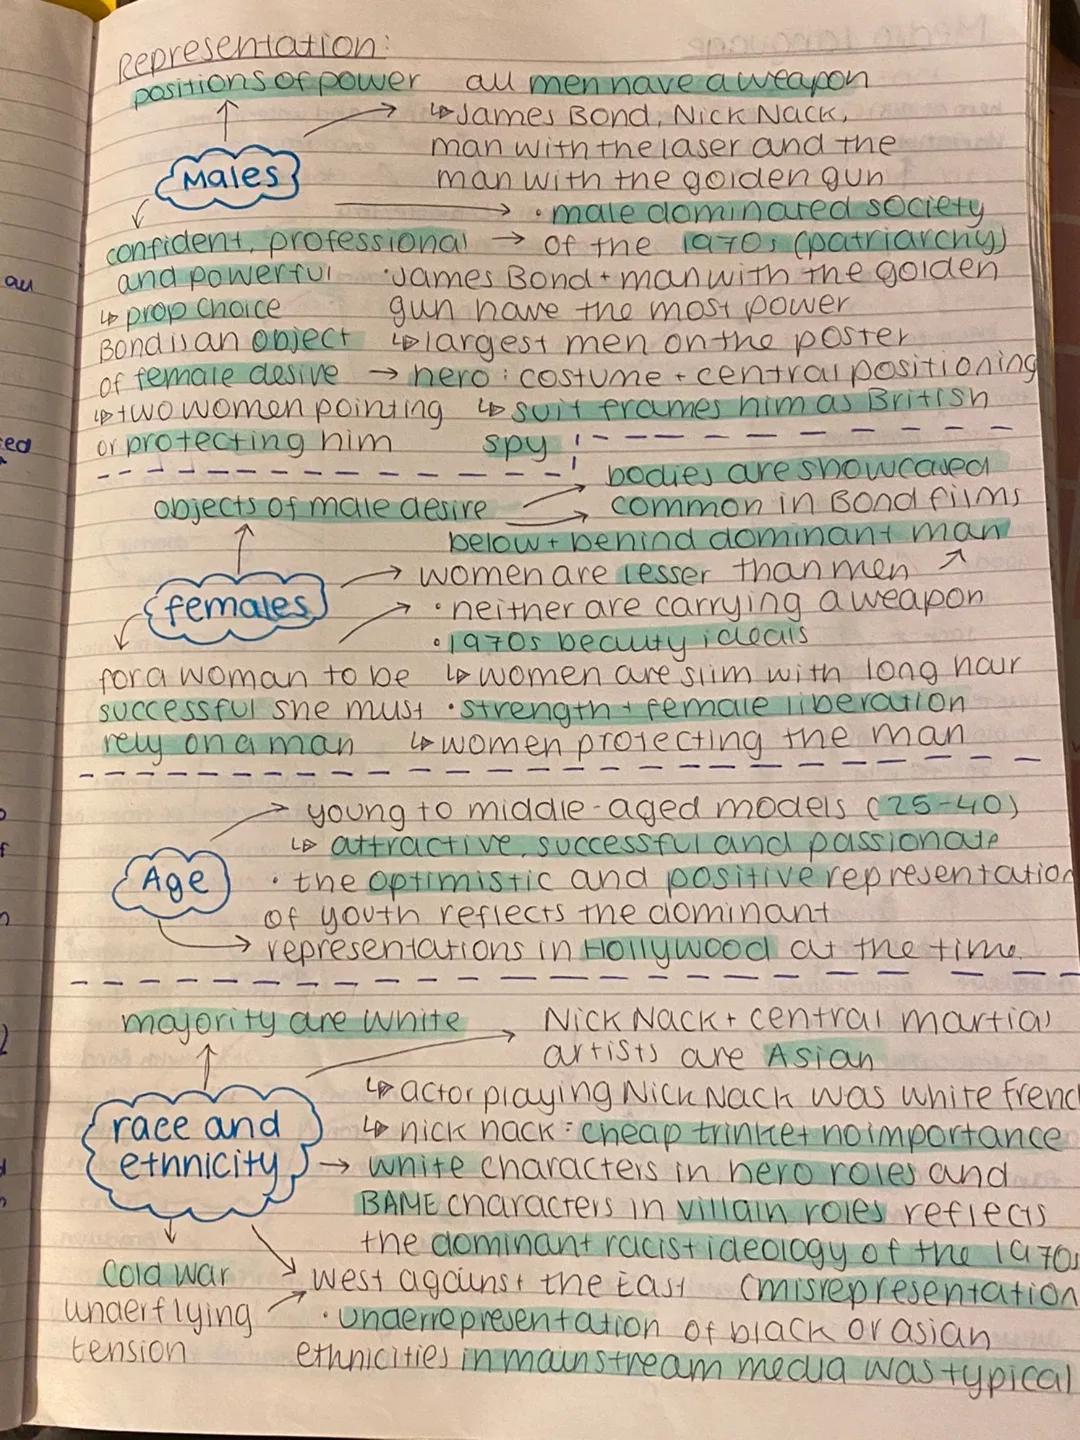 Representation:
positions of power all men have a weapon
↳ James Bond, Nick Nack,
man with the laser and the
Males man with the golden gun
• male dominated society
confident, professional → of the 1970s (patriarchy)
and powerful • James Bond + man with the golden
↳ prop choice gun have the most power
Bond is an object ↳ largest men on the poster
of female desire → hero: costume + central positioning
↳ two women pointing ↳ suit frames him as British
or protecting him spy
bodies are showcased
objects of male desire common in Bond films
below + behind dominant man
→ women are lesser than men
females • neither are carrying a weapon
• 1970s beauty ideals
for a woman to be ↳ women are slim with long hair
successful she must • strength + female liberation
rely on a man ↳ women protecting the man
→ young to middle-aged models (25-40)
↳ attractive, successful and passionate
Age • the optimistic and positive representation
of youth reflects the dominant
→ representations in Hollywood at the time.
majority are white Nick Nack + central martial
artists are Asian
↳ actor playing Nick Nack was white french
race and ↳ nick nack: cheap trinket no importance
ethnicity → white characters in hero roles and
BAME characters in villain roles reflects
the dominant racist ideology of the 1970s
Cold war west against the East (misrepresentation
underflying • underrepresentation of black or asian
tension ethnicities in mainstream media was typical